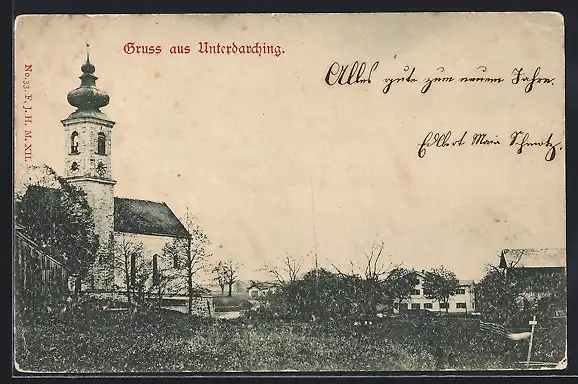 Gruss aus Unterdarching.
Alles gute zum neuen Jahre.
Maria
No. 33. F. J. H. M. XII.